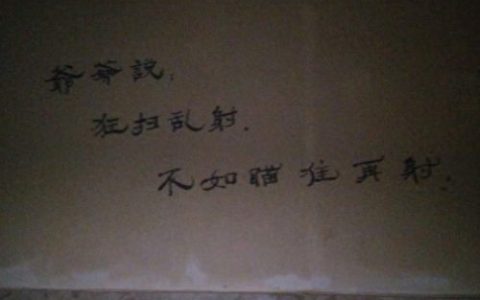 爺爺說,
狂扫乱射.
不如瞄准再射.